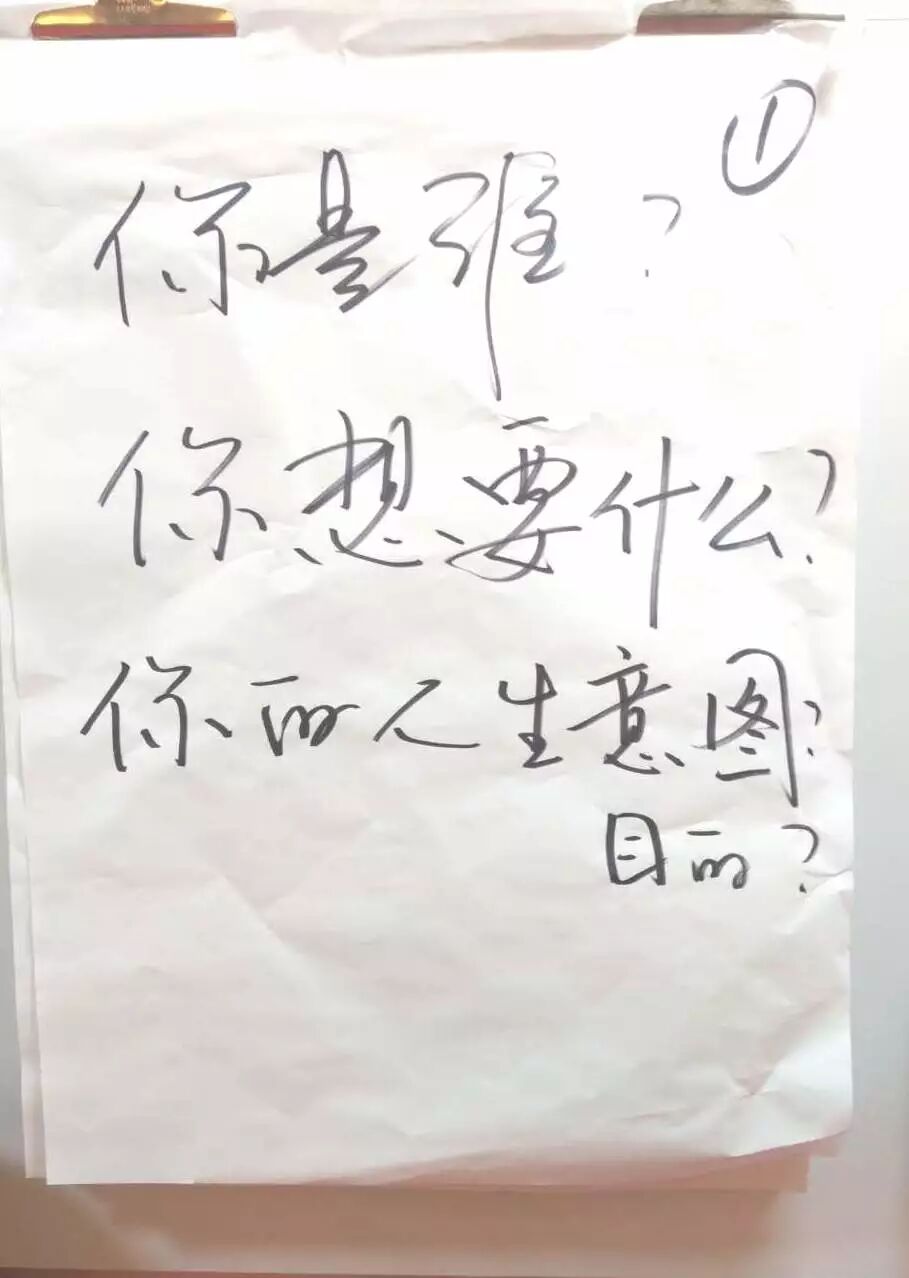 ①
你是谁?
你想要什么?
你的人生意图?
目的?